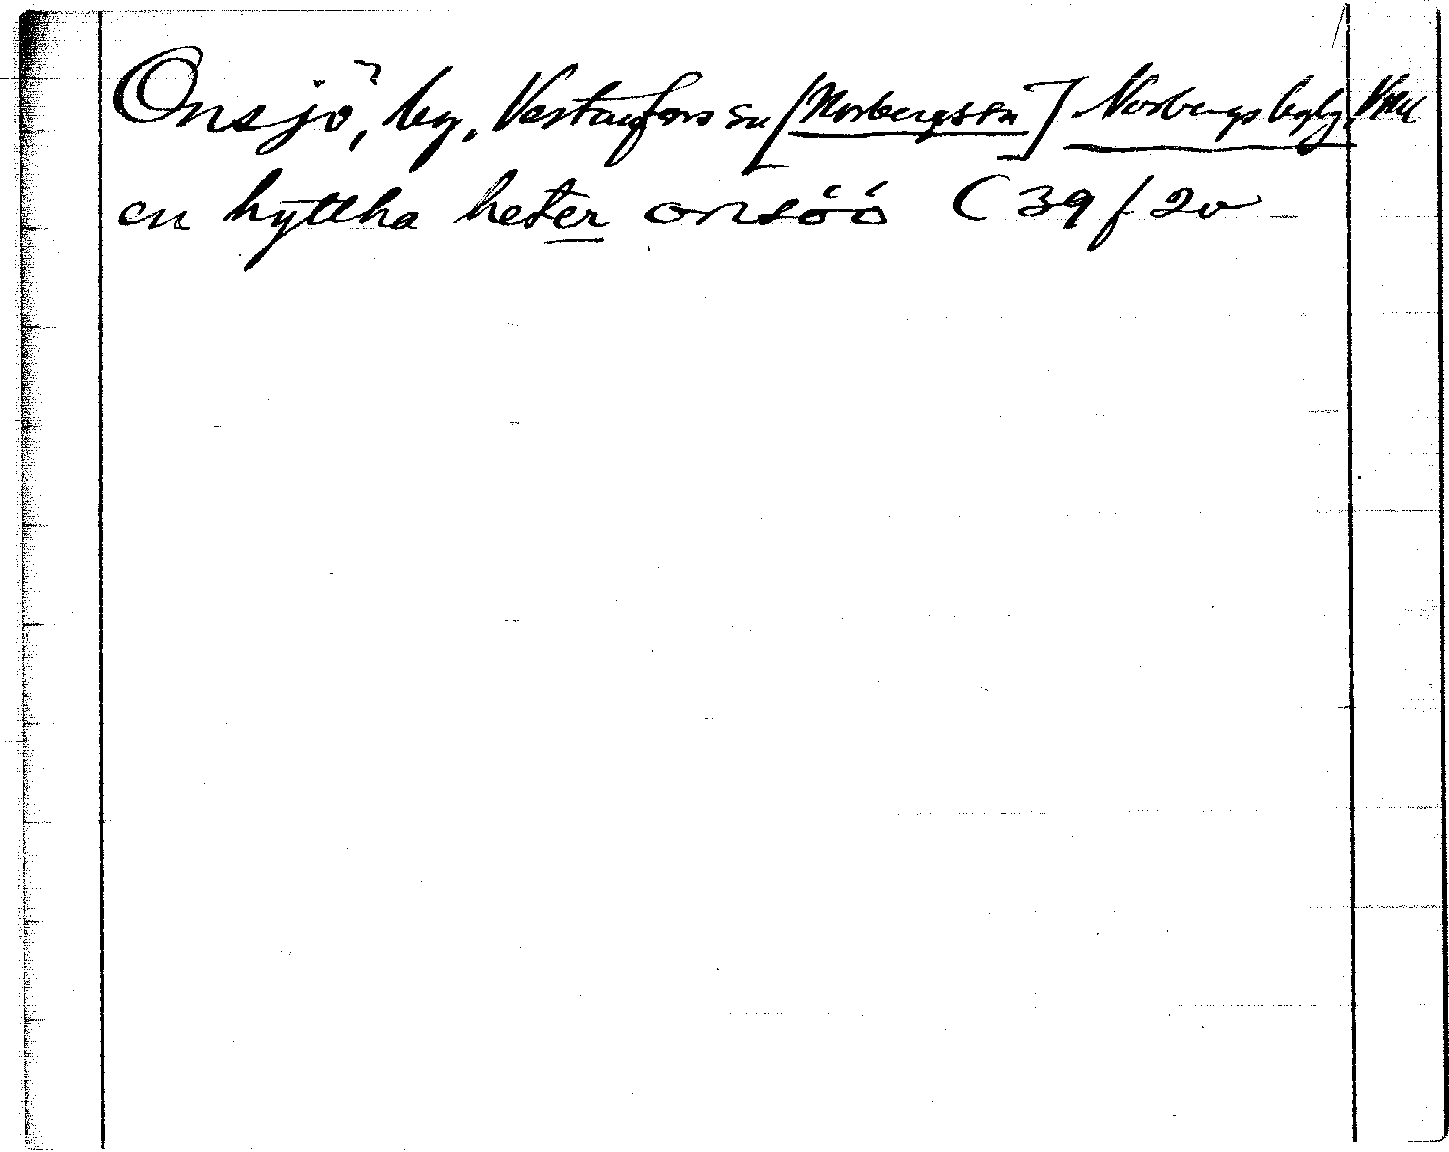 Onsjö, by, Västanfors sn [Norbergs sn] Norbergs bgslg, Vml
en hyttha heter onsöö C 39 f 2v